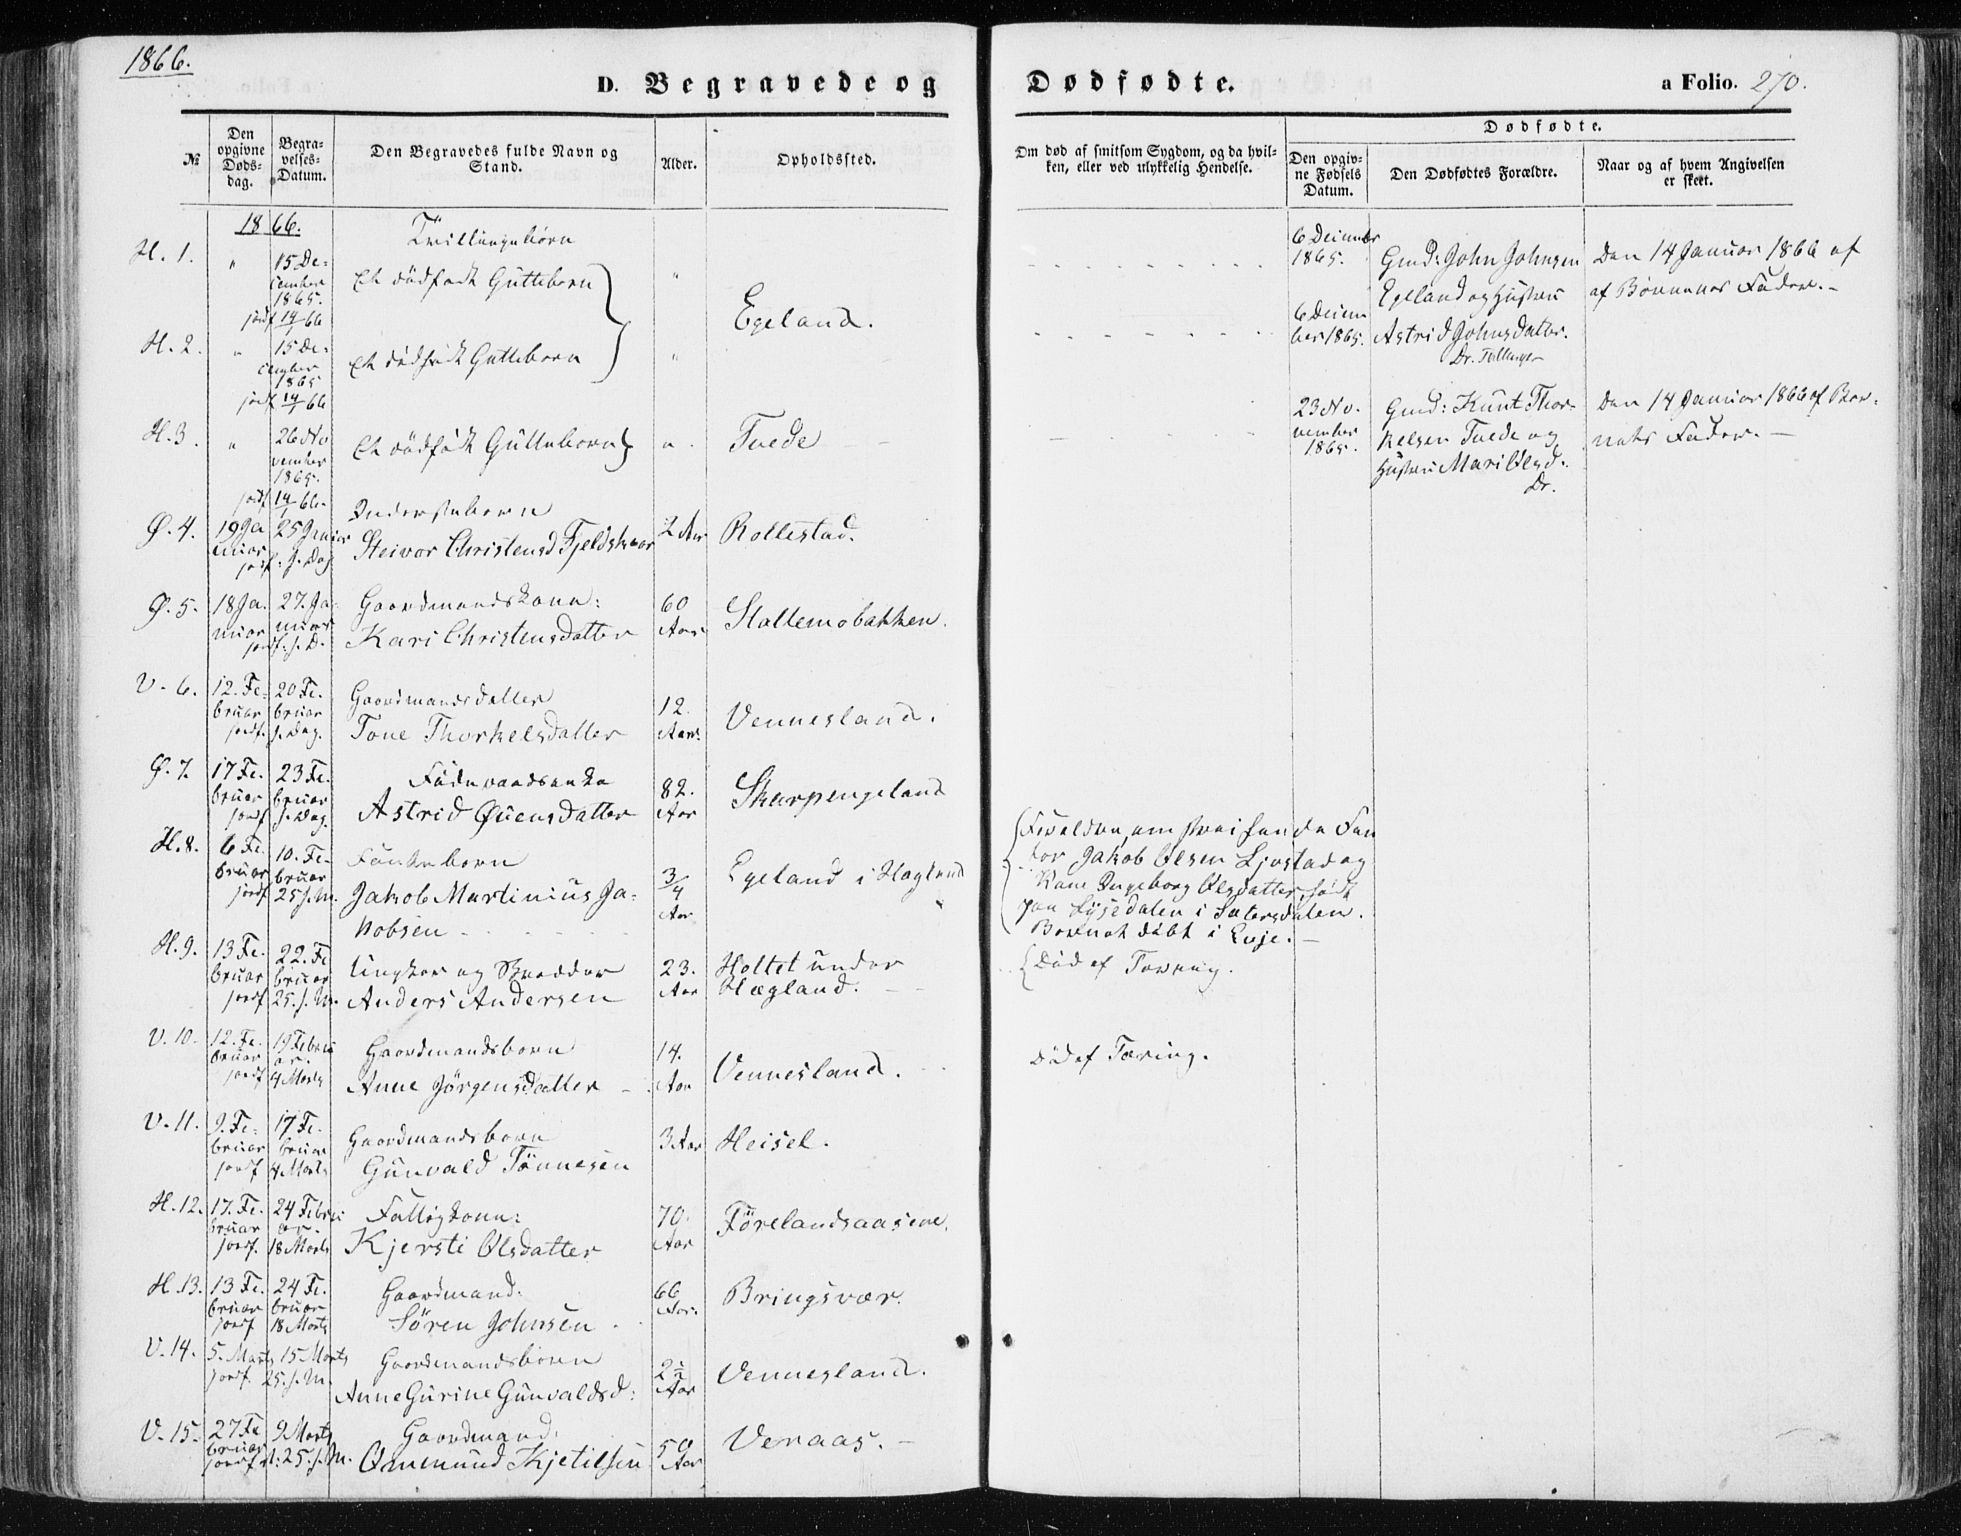 1866.
D. Begravede og Dødfødte. a Folio. 270.
№
Den opgivne Døds-dag.
Begra-velses-Datum.
Den Begravedes fulde Navn og Stand.
Alder.
Opholdssted.
Om død af smitsom Sygdom, og da hvil-
ken, eller ved ulykkelig Hendelse.
Dødfødte.
Den opgiv-ne Fødsels Datum.
Den Dødfødtes Forældre.
Naar og af hvem Angivelsen er skeet.
1866.
H. 1. " 15 De-
cember
1865.
jordf 14/1 66
Tvillingebörn
Et dödfødt Guttebarn "
Egeland.
6 December
1865.
Gmd: John Johnsen
Egeland og Hustru
Astrid Johnsdatter.
Den 14 Januar 1866 af
af Börnenes Fader.-
H. 2. " 15 De-
cember
1865
jordf 14/1 66
Et dödfødt Guttebarn "
6 Decem
ber 1865.
H. 3. " 26 No
vember
1865.
jordf 14/1 66.
Et dödfödt Guttebarn "
Tvede
23 No-
vember
1865.
Gmd: Knut Thor-
kelsen Tvede og
Hustru Mari Olsd.
Den 14 Januar 1866 af Bar-
nets Fader.-
Ø. 4. 19 Ja
nuar
25 Januar
jordf. s. Dag
Inderstebarn
Steivor Christensd Fjeldskaar
2 Aar
Rollestad.
Ø. 5. 18 Ja-
nuar
27. Ja-
nuar
jordf. s. D.
Gaardmandskone:
Kari Christensdatter
60
Aar
Stallemobakken.
V. 6. 12. Fe-
bruar
20 Fe-
bruar
jordf. s. Dag.
Gaardmandsdatter
Tone Thorkelsdatter
12.
Aar
Vennesland.
Ø. 7. 17 Fe-
bruar
23 Fe-
bruar
jordf s. Dag
Astrid Øuensdatter
82.
Aar
Skarpengeland
H. 8. 6 Fe-
bruar
10. Fe-
bruar
jordf 25 s. M.
Fantebarn
Jakob Martinius Ja-
kobsen
3/4
Aar
Egeland i Hægland
Forældre, omstreifende Fan
ter Jakob Olsen Ljostad og
Kone Ingeborg Olsdatter, födt
paa Lysedalen i Sætersdalen.
Barnet døbt i Evje.-
H. 9. 13 Fe-
bruar
22. Fe
bruar
jordf 25. s. M.
Ungkar og Skrædder
Anders Andersen
23.
Aar
Holtet under
Hægland.
Död af Tæring.
V. 10. 12. Fe-
bruar
19 Febru
ar.
jordf 4 Marts
Gaardmandsbarn
Anne Jörgensdatter
14.
Aar
Vennesland.
Död af Tæring.
V. 11. 9. Fe-
bruar
17 Fe-
bruar
jordf 4 Marts
Gaardmandsbarn
Gunvald Tönnesen
3 Aar
Heisel.
H. 12. 17. Fe-
bruar
24 Febru
ar.
jordf. 18 Marts
Fattigkone:
Kjersti Olsdatter
70.
Aar
Förelandsaasene.
H. 13. 13 Fe-
bruar
24 Fe-
bruar
jordf 18 Marts
Gaardmand.
Sören Johnsen
66
Aar.
Bringsvær.
V. 14. 5. Marts 15 Marts
jordf. 25. s. M.
Gaardmandsbarn
Anne Gurine Gunvaldsd:
Aar
Vennesland.
V. 15. 27 Fe
bruar
9 Marts
25. s. M.
Gaardmand.
Omemund Kjetilsen
50
Aar
Veraas.-